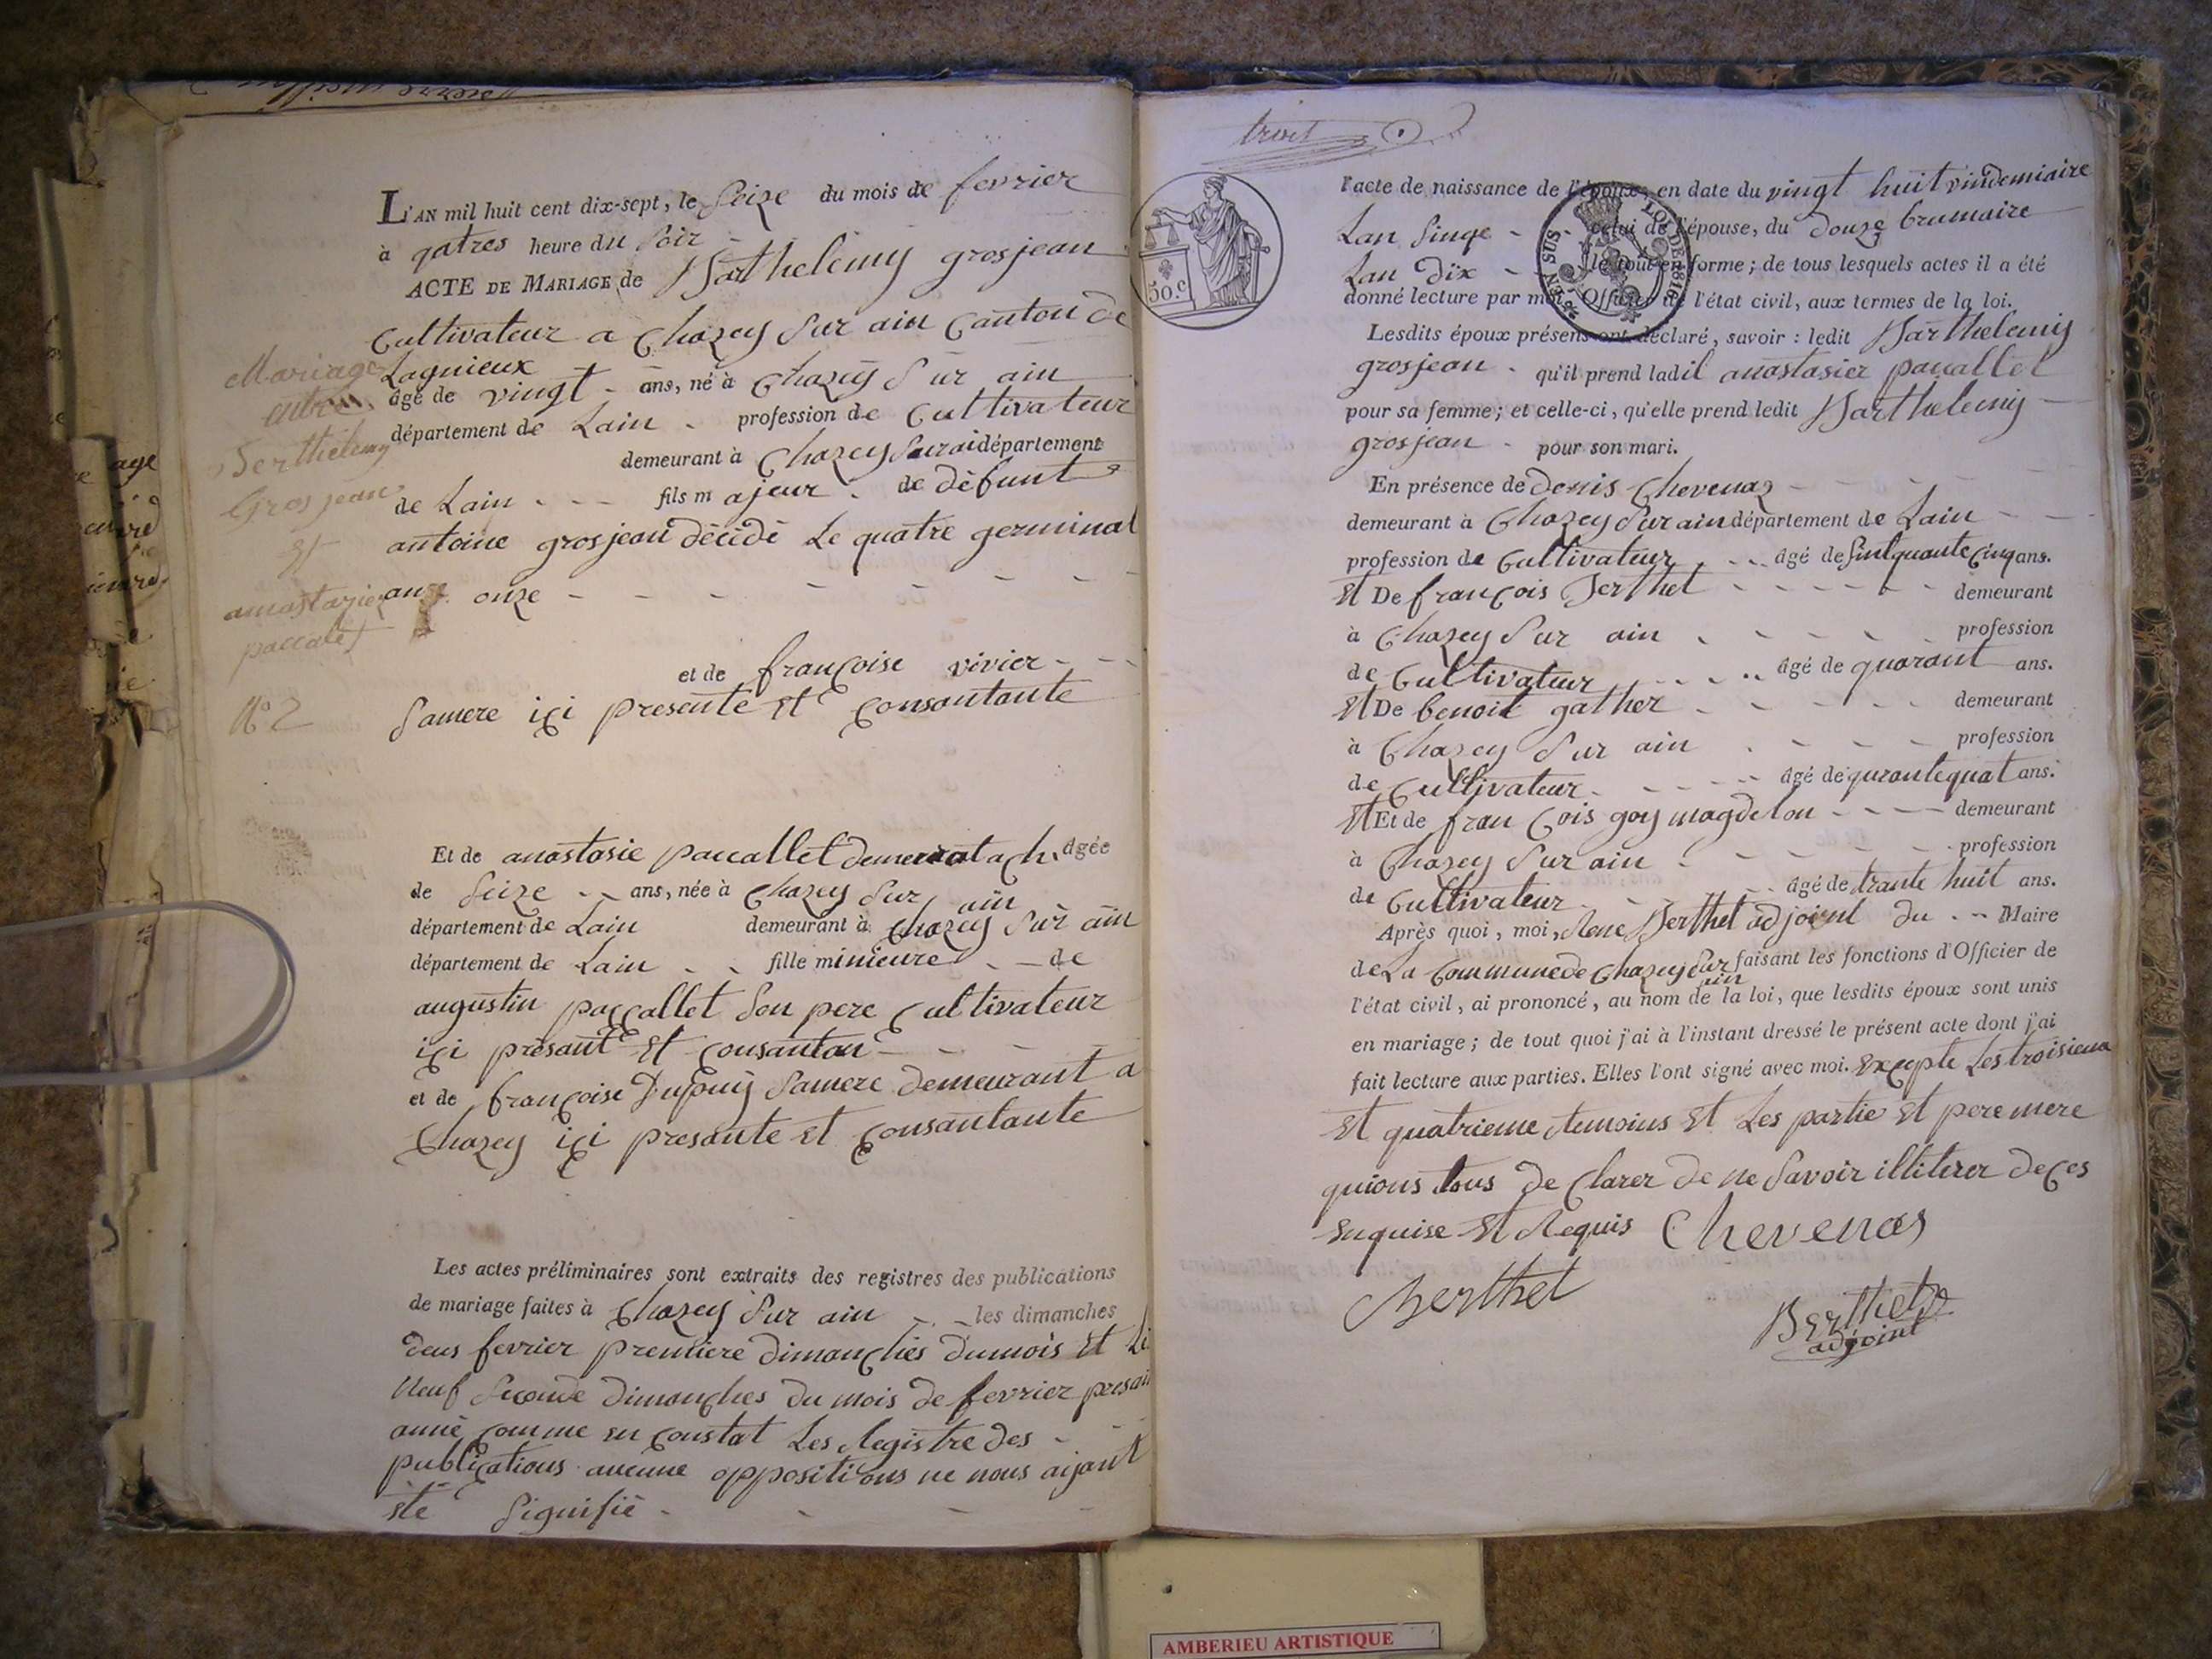 L'AN mil huit cent dix-sept, le Seize du mois de fevrier
à qatres heure du Soir
ACTE DE MARIAGE de Barthelemy grosjean
Cultivateur a Chazey Sur ain Canton de
Lagnieux
âgé de vingt - ans, né à Chazey Sur ain
département de Lain - profession de Cultivateur
demeurant à Chazey Surai département
de Lain - - - fils majeur - de défunt
antoine grosjean décédé Le quatre germinal
an onze - - - - - -
et de françoise vivier - -
Samere ici presente et consantante
Mariage
entre
Berthelemy
Grosjean
Et
anastazie
paccalet
N° 2
Et de anastasie paccallet demeurat a ch. âgée
de Seize - - ans, née à Chazey Sur ain
département de Lain demeurant à Chazey Sur ain
département de Lain - - fille minieure - - de
augustin paccallet Son pere Cultivateur
ici présant et consantan - - -
et de françoise Dupuij Samere demeurant a
Chazey ici presante et consantante
Les actes préliminaires sont extraits des registres des publications
de mariage faites à Chazey Sur ain - - les dimanches
deus fevrier premiere dimanches dumois et Le
Neuf Seconde dimanches du mois de fevrier presan
anné comme en constat Les Registre des -
publications aucune oppositions ne nous aijant
été Signifié - - - -
50.c
EN SUS
LOI DE 1816
l'acte de naissance de l'époux, en date du vingt huit vindemiaire
Lan Sinqe - - celui de l'épouse, du douze brumaire
Lan dix - - le tout en forme; de tous lesquels actes il a été
donné lecture par moi, Officier de l'état civil, aux termes de la loi.
Lesdits époux présens ont déclaré, savoir : ledit Barthelemy
grosjean - qu'il prend ladil anastasier pacallet
pour sa femme; et celle-ci, qu'elle prend ledit Barthelemy -
grosjean - pour son mari.
En présence de denis Chevenas - - - -
demeurant à Chazey Sur ain département de Lain - -
profession de Cultivateur - - - âgé de Sinlquante Cinq ans.
Et De françois Berthet - - - - - - demeurant
à Chazey Sur ain - - - - - profession
de Cultivateur - - - - - âgé de quarant ans.
Et De benoit gather - - - - - demeurant
à Chazey Sur ain - - - - profession
de Cultivateur - - - - âgé de qurantequat ans.
Et Et de fran Cois goy magdelon - - - - demeurant
à Chazey Sur ain - - - - - profession
de Cultivateur - - - - âgé de trante huit ans.
Après quoi, moi, Rene Berthet adjoint du - - Maire
de La Commune de Chazey Sur ain faisant les fonctions d'Officier de
l'état civil, ai prononcé, au nom de la loi, que lesdits époux sont unis
en mariage; de tout quoi j'ai à l'instant dressé le présent acte dont j'ai
fait lecture aux parties. Elles l'ont signé avec moi. Excepte Les troisieme
Et quatrieme temoins Et Les partie Et pere mere
quions tous de Clarer de ne Savoir illiterer de ces
Enquise Et Requis Chevenas
Berthet
Berthet
adjoint
AMBERIEU ARTISTIQUE